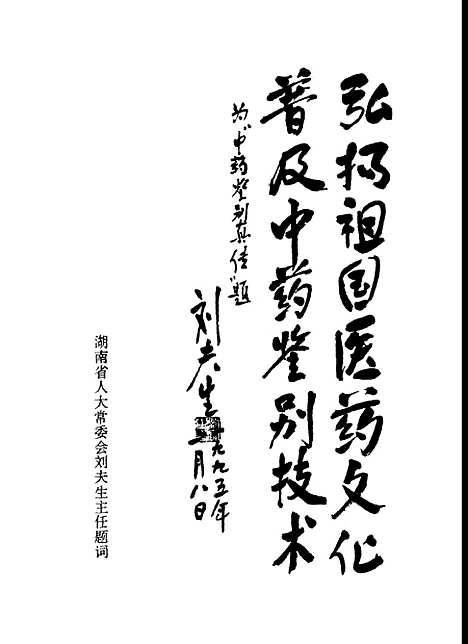 弘扬祖国医药文化
普及中药鉴别技术
为《中药鉴别真传》题
刘夫生
一九九五年
二月八日
湖南省人大常委会刘夫生主任题词